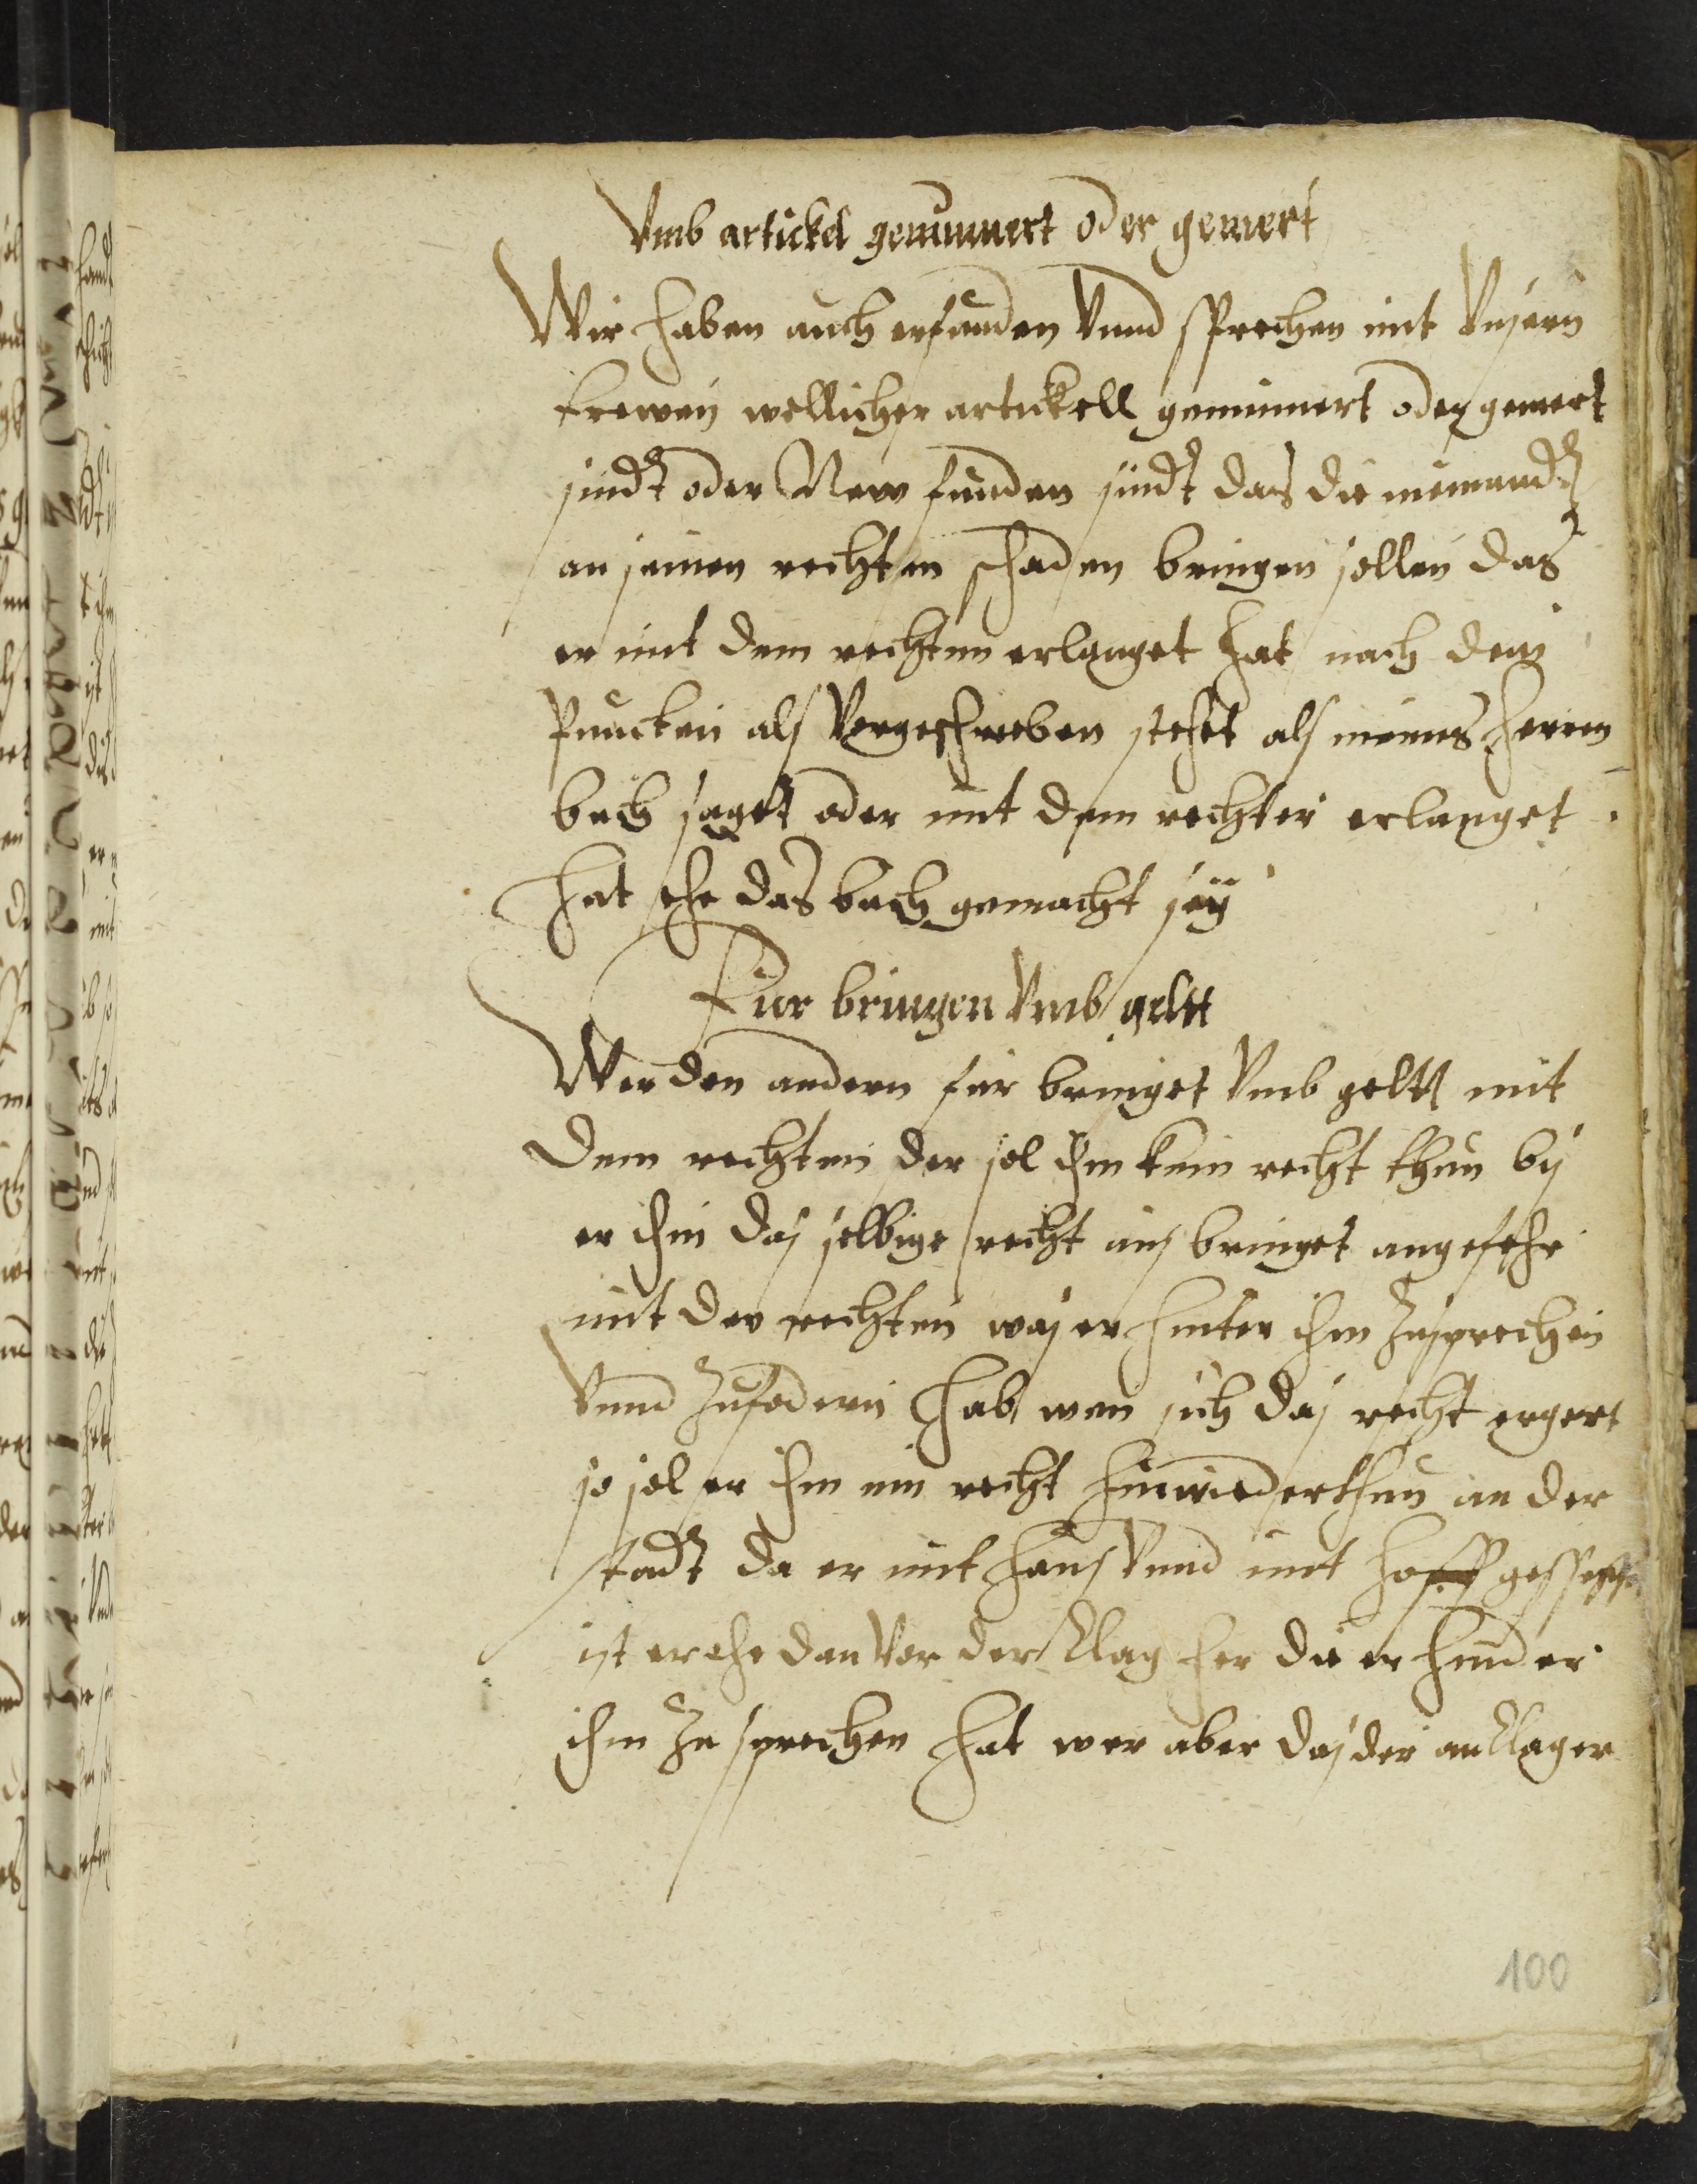 Vmb artickel geminnert oder gemert
Wir haben auch erfunden Vnnd sprechen mit Vnsern
trewen wellicher artickell geminnert oder gemert
sindt oder New funden sindt das die niemandt
an seinen rechten schaden bringen sollen das
er mit dem rechten erlanget hat nach dem
Puncten als Vorgeschreben stehet als meines herrn
buch saget oder mit dem rechten erlanget
hat ehe das buch gemacht sey
Fur bringen Vmb geltt
Wer den andern fur bringet Vmb geltt mit
dem rechten der sol ihm kein recht thun bis
er ihm das selbige recht aus bringet angefehr
mit der rechten was er hinter ihm zusprechen
Vnnd zufodern hab, wen sich das recht ergert
so sol er ihm ein recht hinwiederthun an der
stadt da er mit haus Vnnd mit hoff gessessen
ist er ehe dan Vor der klag her die er hinder
ihm zu sprechen hat wer aber das der anklager
100